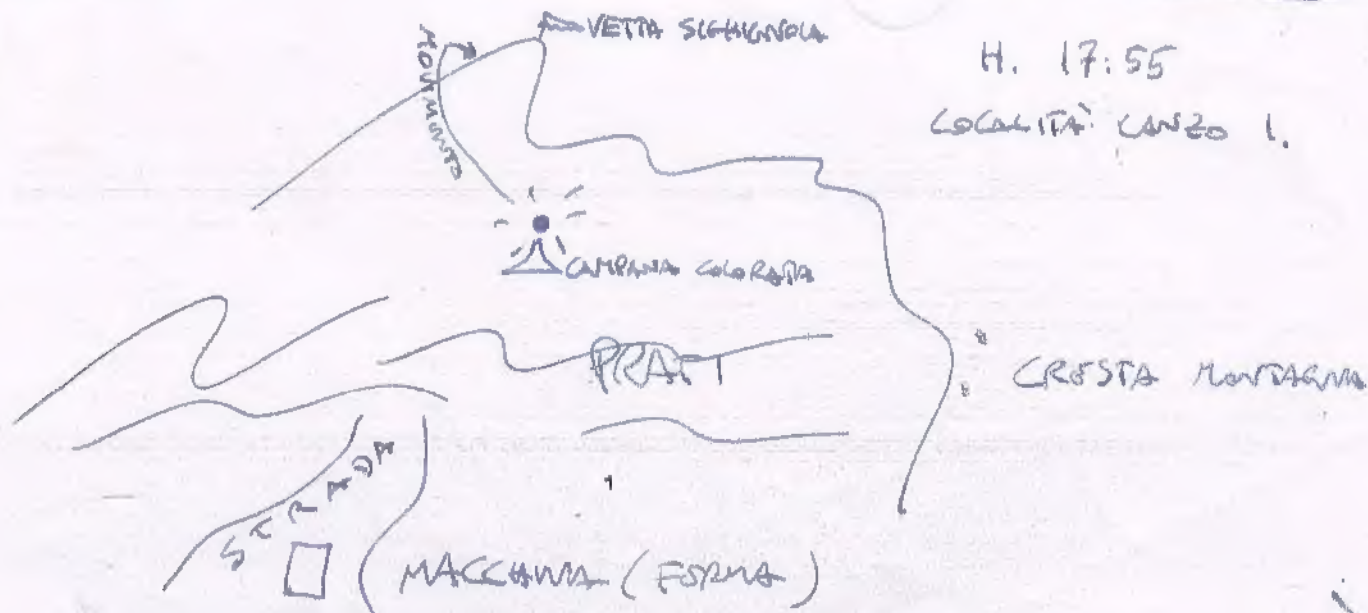 VETTA SIGHIGNOLA
H. 17:55
LOCALITÀ LANZO I.
MOVIMENTO
CAMPANA COLORATA
PRATI
CRESTA MONTAGNA
STRADA
MACCHINA (FERMA)